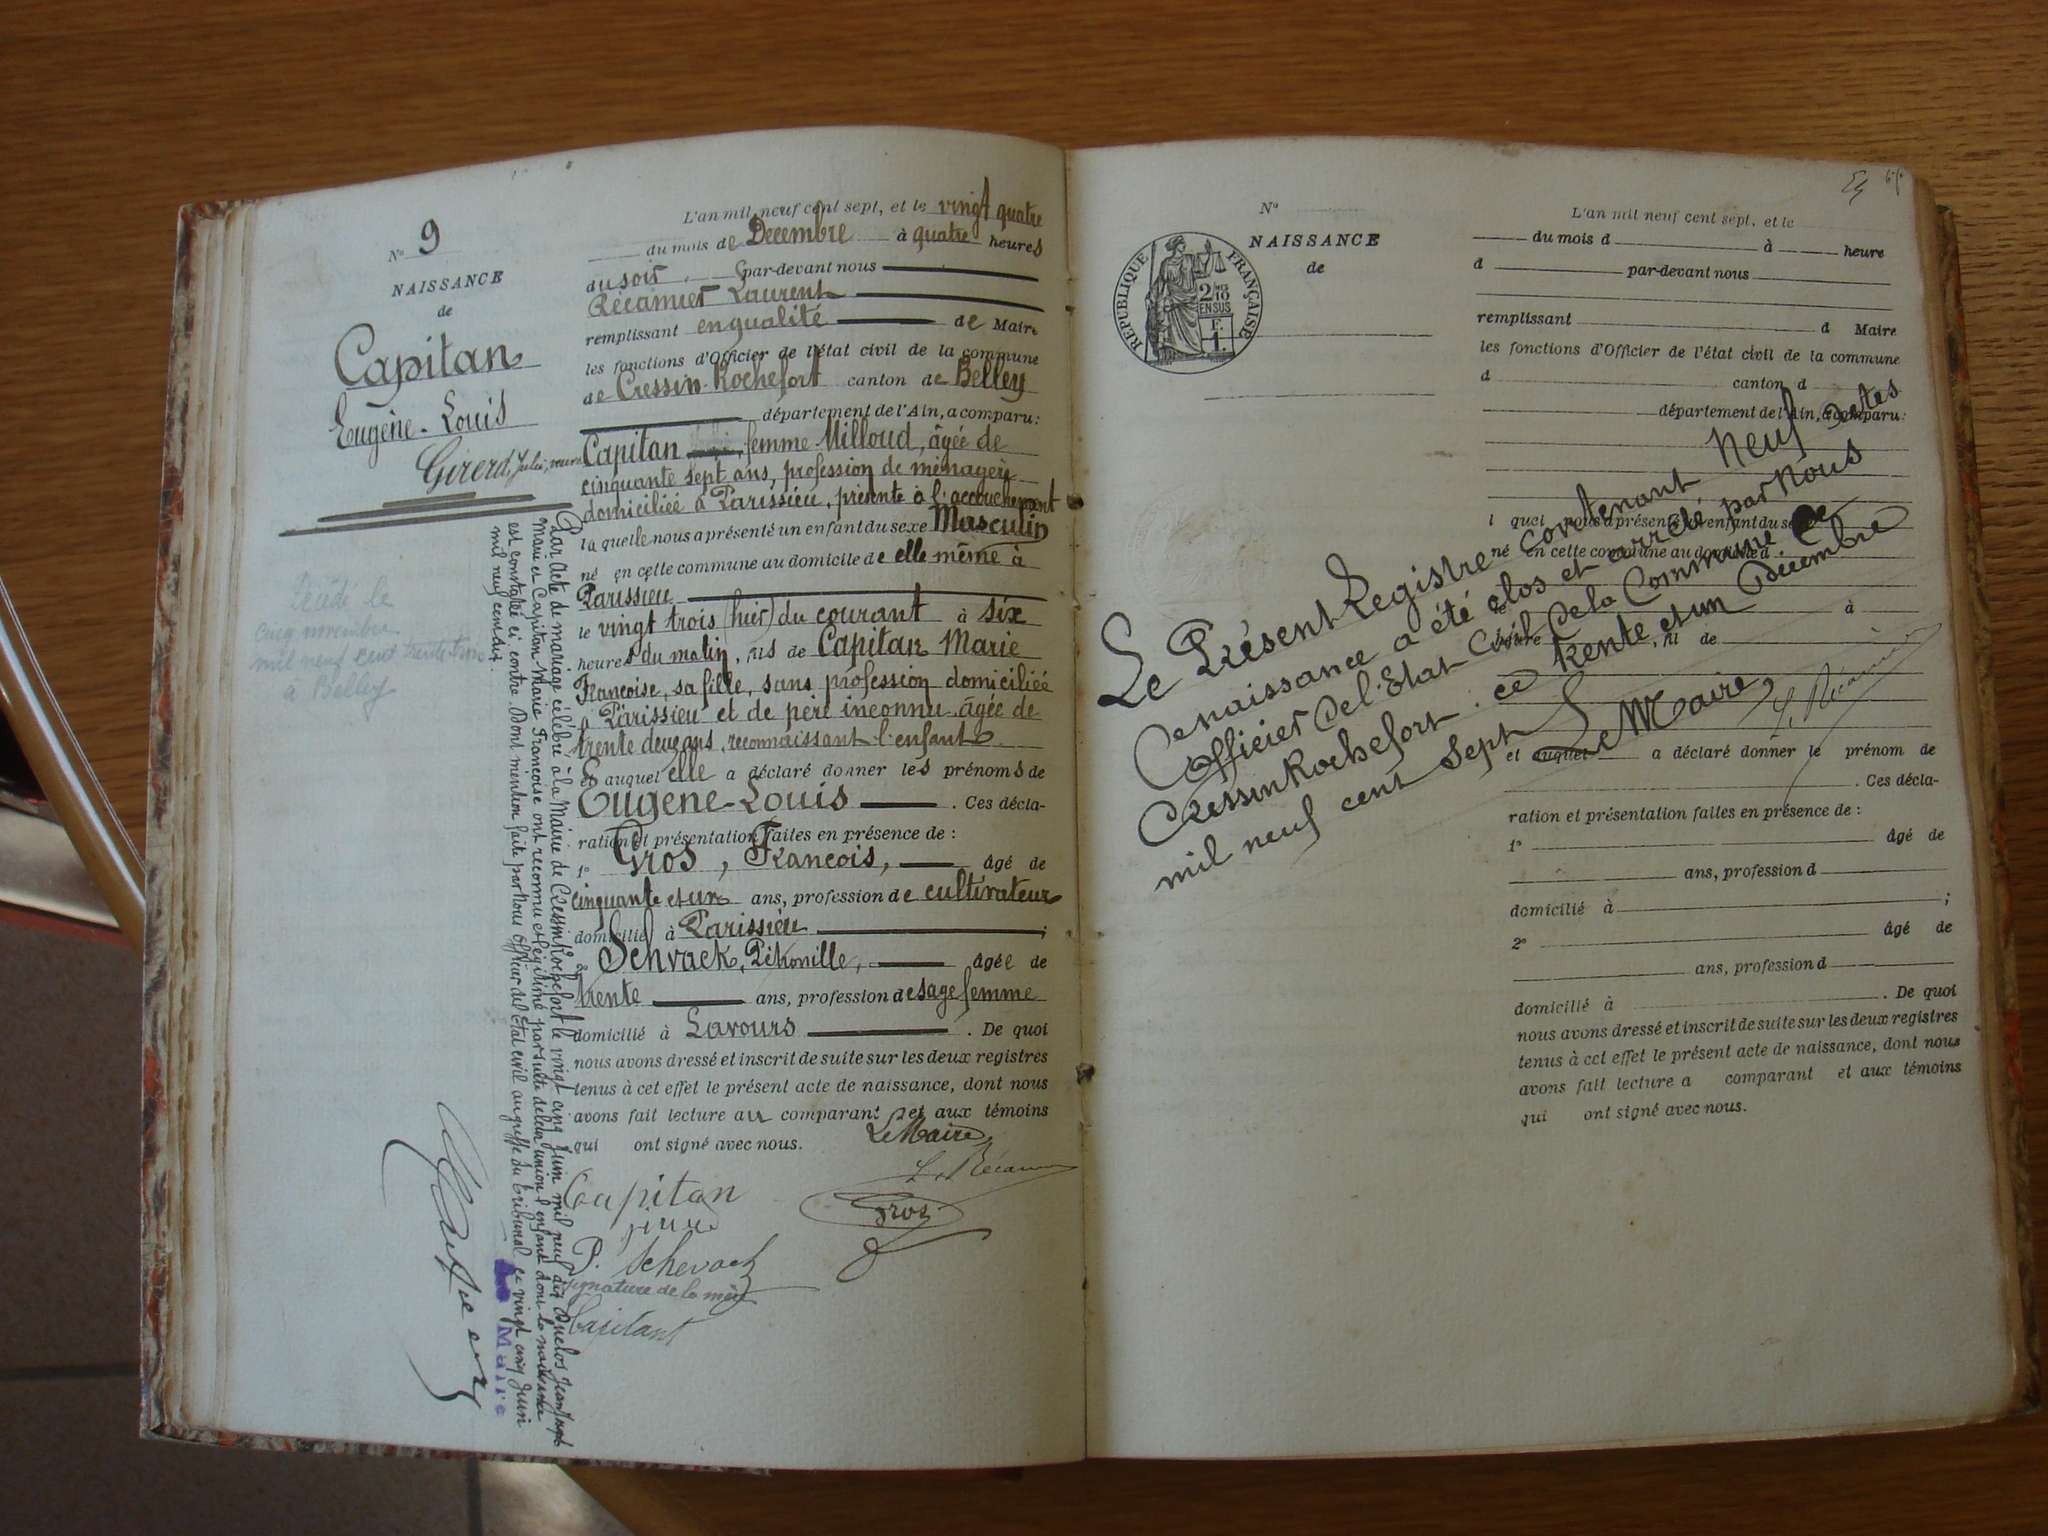 N° 9
NAISSANCE
de
Capitan
Eugène-Louis
Girerd, Julie, veuve
L'an mil neuf cent sept, et le vingt quatre
du mois de Décembre à quatre heures
du soir, par-devant nous
Récamier Laurent
remplissant en qualité de Maire
les fonctions d'Officier de l'état civil de la commune
de Cressin-Rochefort canton de Belley
département de l'Ain, a comparu:
Capitan femme Milloud, âgée de
cinquante sept ans, profession de ménagère
domiciliée à Parissieu, présente à l'accouchement
laquelle nous a présenté un enfant du sexe Masculin
né en cette commune au domicile de elle même à
Parissieu
le vingt trois (hier) du courant à six
heures du matin, fils de Capitan Marie
Françoise, sa fille, sans profession domiciliée
à Parissieu et de père inconnu, âgée de
trente deux ans, reconnaissant l'enfant
et auquel elle a déclaré donner les prénoms de
Eugène-Louis. Ces décla-
ration et présentation faites en présence de :
1° Gros, François, âgé de
cinquante et un ans, profession de cultivateur
domicilié à Parissieu ;
2° Schvack, Pétronille, âgée de
trente ans, profession de sage femme
domicilié à Lavours. De quoi
nous avons dressé et inscrit de suite sur les deux registres
tenus à cet effet le présent acte de naissance, dont nous
avons fait lecture au comparant et aux témoins
qui ont signé avec nous. Le Maire
L. Récamier
Capitan
Gros
P. Schevach
signature de la mère
Capitant
Par acte de mariage célébré à la Mairie de Cressin Rochefort le vingt cinq Juin mil neuf dix Duclos Jean Joseph
Marie et Capitan Marie Françoise ont reconnu et légitimé par suite de leur union l'enfant dont la naissance
est constatée ci contre. Dont mention faite par Nous Officier de l'Etat civil au greffe du tribunal ce vingt cinq Juin
mil neuf cent dix.
Le Maire
Décédé le
cinq novembre
mil neuf cent trente
à Belley
N°
NAISSANCE
de
RÉPUBLIQUE FRANÇAISE
2/10
EN SUS
F.
1.
L'an mil neuf cent sept, et le
du mois d à heure
d par-devant nous
remplissant d Maire
les fonctions d'Officier de l'état civil de la commune
d canton d
département de l'Ain, a comparu:
l quel nous a présenté un enfant du sexe
né en cette commune au domicile d
le à
heure, fil de
et auquel a déclaré donner le prénom de
. Ces décla-
ration et présentation faites en présence de :
1° âgé de
ans, profession d
domicilié à ;
2° âgé de
ans, profession d
domicilié à . De quoi
nous avons dressé et inscrit de suite sur les deux registres
tenus à cet effet le présent acte de naissance, dont nous
avons fait lecture a comparant et aux témoins
qui ont signé avec nous.
Le Présent Registre contenant Neuf actes
de naissance a été clos et arrêté par Nous
Officier de l'Etat Civil de la Commune de
Cressin Rochefort. ce trente et un Décembre
mil neuf cent sept
Le Maire,
L. Récamier